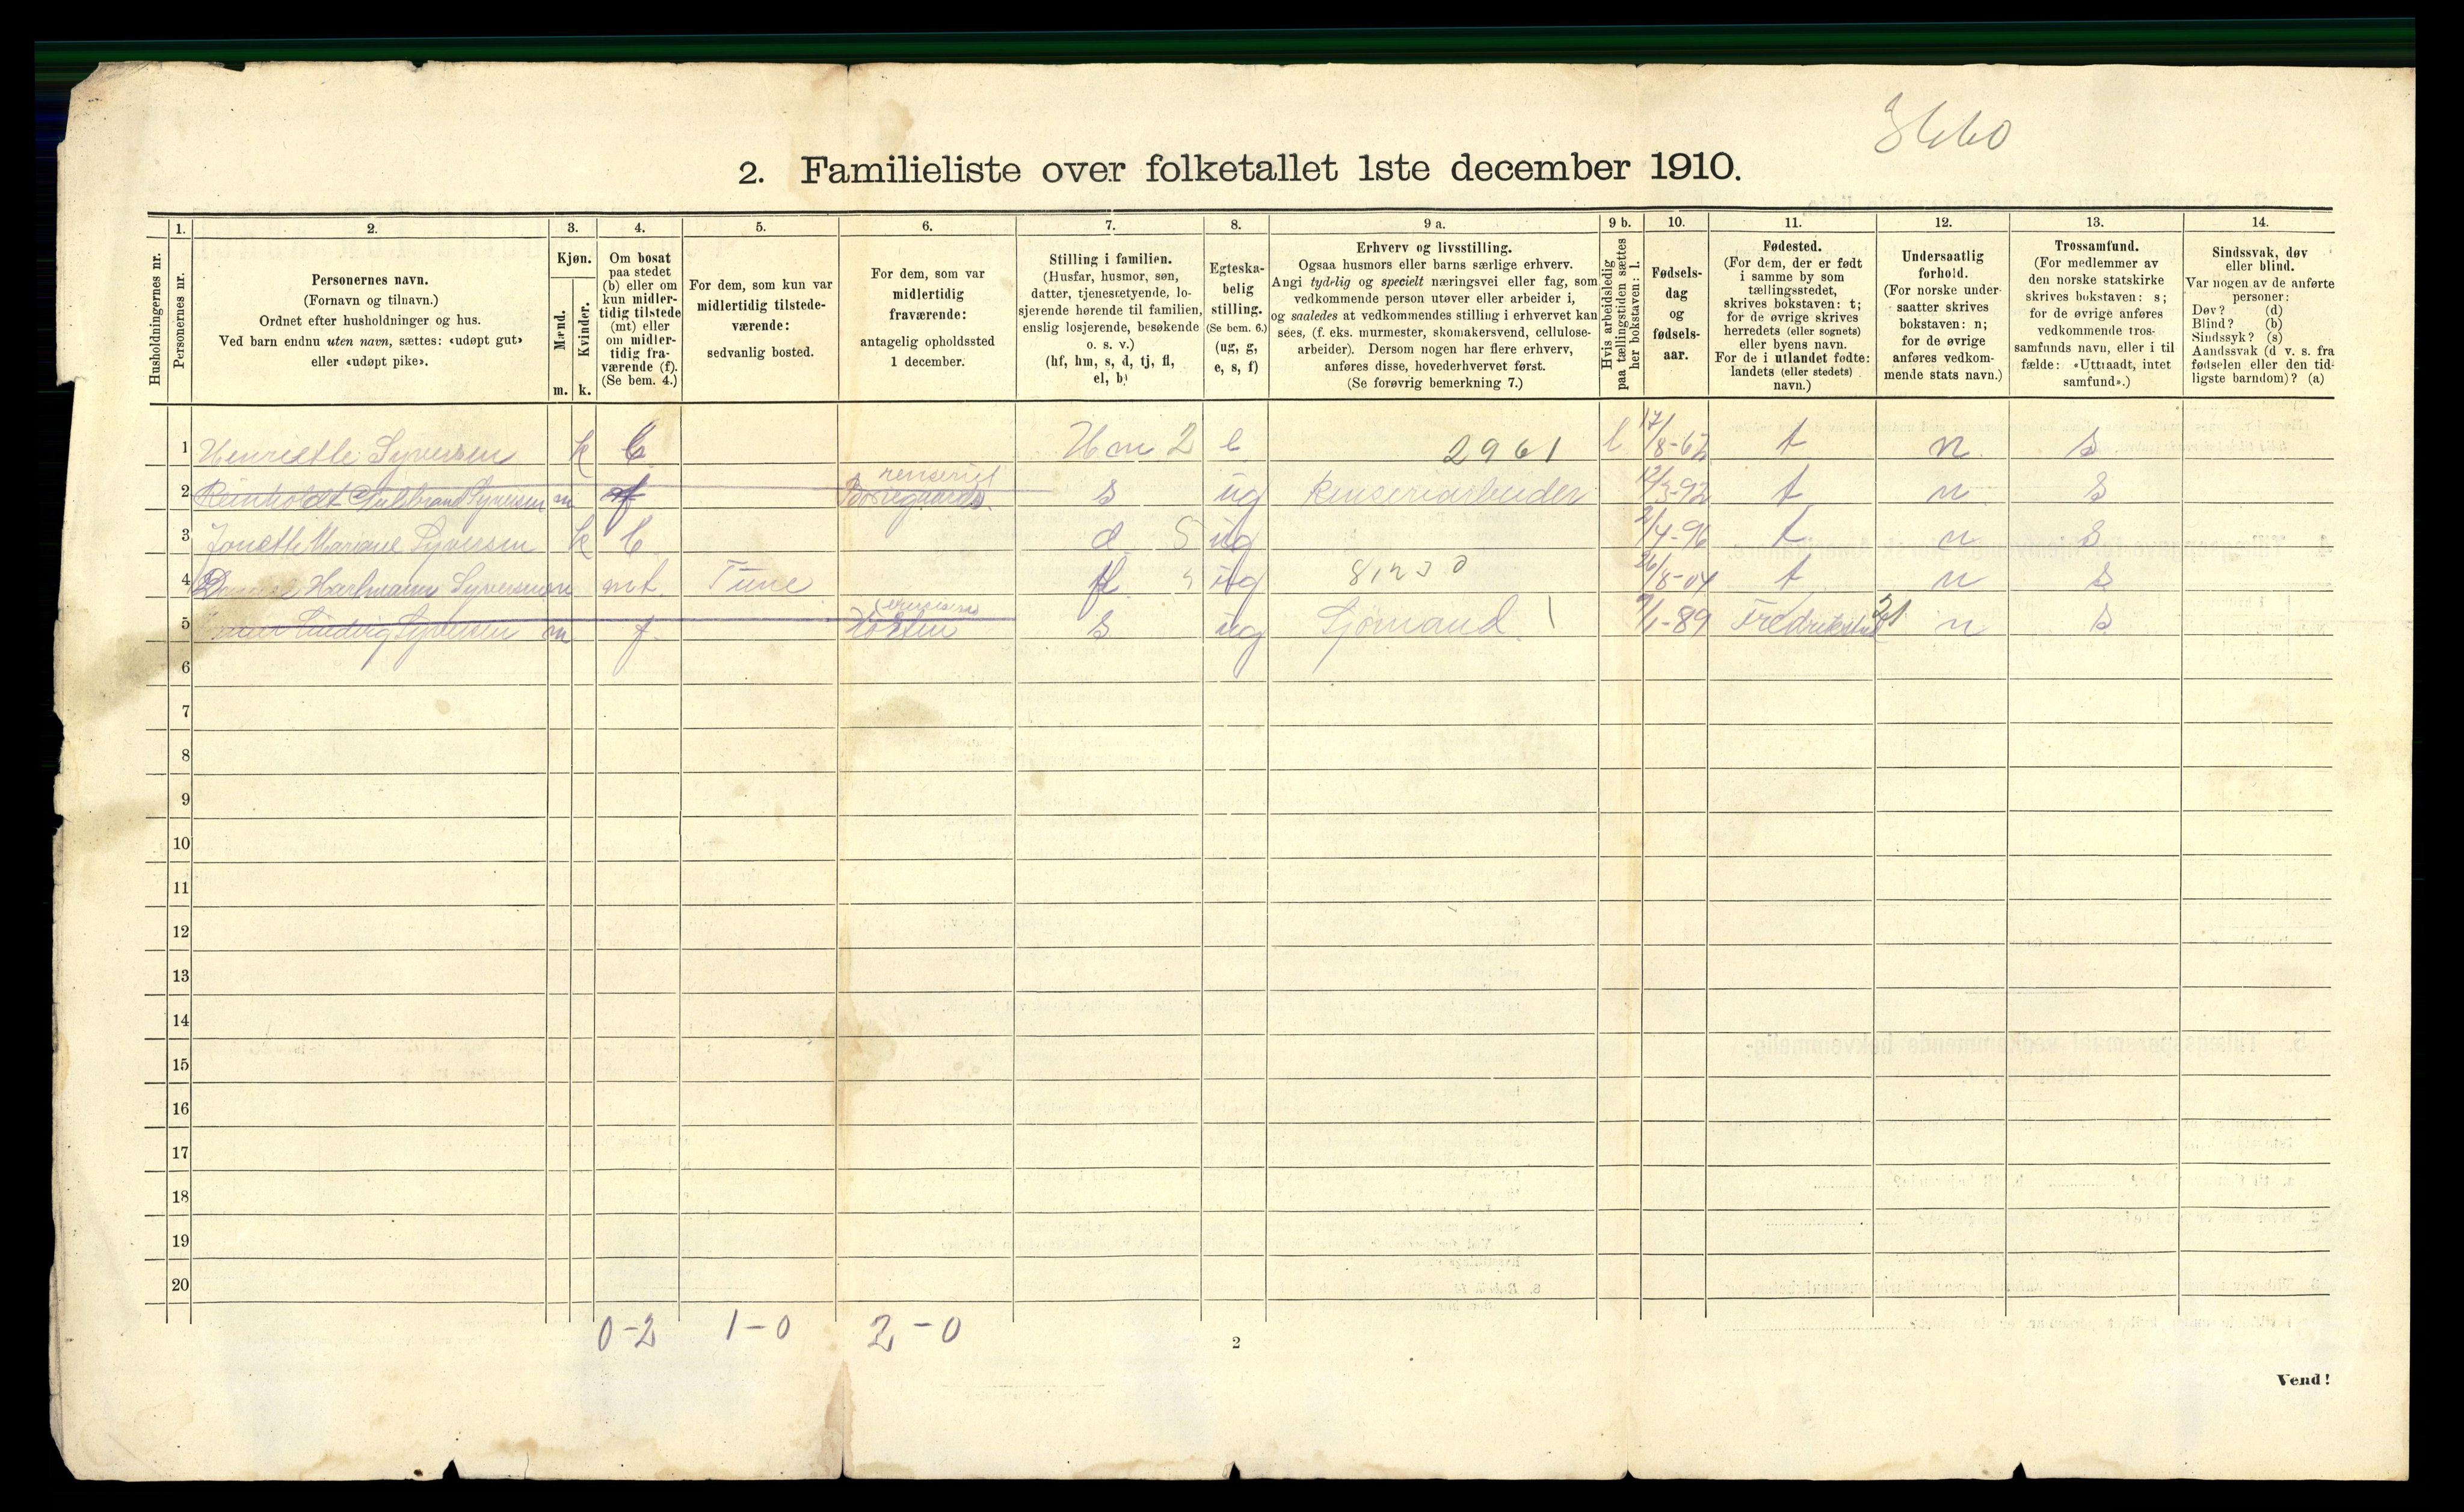 2. Familieliste over folketallet 1ste december 1910.
Husholdningernes nr.
Personernes nr.
1. 2. 3. 4. 5. 6. 7. 8. 9 a. 9 b. 10. 11. 12. 13. 14.
Personernes navn.
(Fornavn og tilnavn.)
Ordnet efter husholdninger og hus.
Ved barn endnu uten navn, sættes: «udøpt gut»
eller «udøpt pike».
Kjøn.
Mænd.
Kvinder.
m. k.
Om bosat
paa stedet
(b) eller om
kun midler-
tidig tilstede
(mt) eller
om midler-
tidig fra-
værende (f).
(Se bem. 4.)
For dem, som kun var
midlertidig tilstede-
værende:
sedvanlig bosted.
For dem, som var
midlertidig
fraværende:
antagelig opholdssted
1 december.
Stilling i familien.
(Husfar, husmor, søn,
datter, tjenestetyende, lo-
sjerende hørende til familien,
enslig losjerende, besøkende
o. s. v.)
(hf, hm, s, d, tj, fl,
el, b)
Egteska-
belig
stilling.
(Se bem. 6.)
(ug, g,
e, s, f)
Erhverv og livsstilling.
Ogsaa husmors eller barns særlige erhverv.
Angi tydelig og specielt næringsvei eller fag, som
vedkommende person utøver eller arbeider i,
og saaledes at vedkommendes stilling i erhvervet kan
sees, (f. eks. murmester, skomakersvend, cellulose-
arbeider). Dersom nogen har flere erhverv,
anføres disse, hovederhvervet først.
(Se forøvrig bemerkning 7.)
Hvis arbeidsledig
paa tællingstiden sættes
her bokstaven: l.
Fødsels-
dag
og
fødsels-
aar.
Fødested.
(For dem, der er født
i samme by som
tællingsstedet,
skrives bokstaven: t;
for de øvrige skrives
herredets (eller sognets)
eller byens navn.
For de i utlandet fødte:
landets (eller stedets)
navn.)
Undersaatlig
forhold.
(For norske under-
saatter skrives
bokstaven: n;
for de øvrige
anføres vedkom-
mende stats navn.)
Trossamfund.
(For medlemmer av
den norske statskirke
skrives bokstaven: s;
for de øvrige anføres
vedkommende tros-
samfunds navn, eller i til
fælde: «Uttraadt, intet
samfund».)
Sindssvak, døv
eller blind.
Var nogen av de anførte
personer:
Døv? (d)
Blind? (b)
Sindssyk? (s)
Aandssvak (d v. s. fra
fødselen eller den tid-
ligste barndom)? (a)
1 Henriette Syversen k b Hm 2 e 2961 l 17/8-62 t n s
2 Reinholdt Gulbrand Syversen m f s ug Renseriarbeider 12/3-92 t n s
3 Jonette Mariane Syversen k b d S ug 2/4-96 t n s
4 Hartmann Syversen m mt Tune fl ug 26/8-04 t n s
5 Ludvig Syversen m f s ug Sjømand 1 9/1-89 Fredrikstad 21 n s
6
7
8
9
10
11
12
13
14
15
16
17
18
19
20
0-2 1-0 2-0
2
Vend!